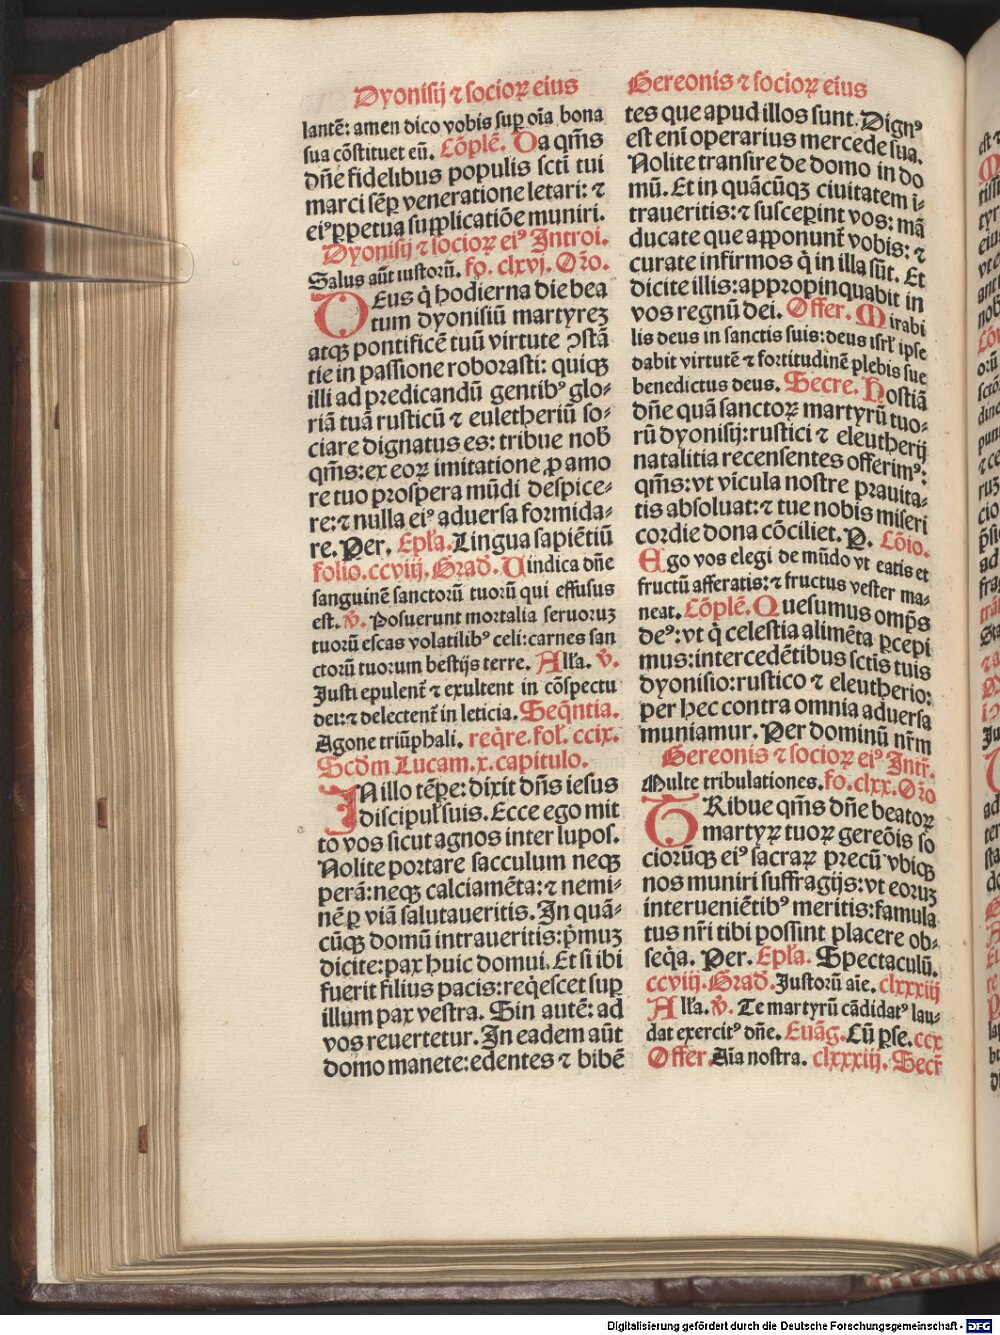 Dyonisij ⁊ socioꝝ eius
lantē: amen dico vobis suꝑ oīa bona
sua cōstituet eū. Cōplē. Da qm̄s
dn̄e fidelibus populis scti tui
marci sēꝑ veneratione letari: ⁊
eiꝰ ꝑpetua supplicatiōe muniri.
Dyonisij ⁊ socioꝝ eiꝰ Introi.
Salus aūt iustorū. fo. clxvj. Oro.
DEus q̇ hodierna die bea
tum dyonisiū martyrez
atqꝫ pontificē tuū virtute ꝯstā
tie in passione roborasti: quiqꝫ
illi ad predicandū gentibꝰ glo-
riā tuā rusticū ⁊ euletheriū so-
ciare dignatus es: tribue nob̄
qm̄s: ex eoꝝ imitatione ꝓ amo
re tuo prospera mūdi despice-
re: ⁊ nulla eiꝰ aduersa formida-
re. Per. Epl̄a. Lingua sapiētiū
folio. ccviij. Grad. Vindica dn̄e
sanguinē sanctorū tuorū qui effusus
est. v̄. Posuerunt mortalia seruoruz
tuorū escas volatilibꝰ celi: carnes san
ctorū tuorum bestijs terre. All'a. v̄.
Justi epulent̄ ⁊ exultent in cōspectu
dei: ⁊ delectent̄ in leticia. Seq̄ntia.
Agone triūphali. req̄re. fol̄. ccix.
Scd̄m Lucam. x. capitulo.
IN illo tēꝑe: dixit dn̄s iesus
discipul̄ suis. Ecce ego mit
to vos sicut agnos inter lupos.
Nolite portare sacculum neqꝫ
perā: neqꝫ calciamēta: ⁊ nemi-
nē ꝑ viā salutaueritis. In quā-
cūqꝫ domū intraueritis: p̄muz
dicite: pax huic domui. Et si ibi
fuerit filius pacis: req̇escet suꝑ
illum pax vestra. Sin autē: ad
vos reuertetur. In eadem aūt
domo manete: edentes ⁊ bibē
Gereonis ⁊ socioꝝ eius
tes que apud illos sunt. Dignꝰ
est enī operarius mercede sua.
Nolite transire de domo in do
mū. Et in quācūqꝫ ciuitatem i-
traueritis: ⁊ susceperint vos: mā
ducate que apponunt̄ vobis: ⁊
curate infirmos q̇ in illa sūt. Et
dicite illis: appropinquabit in
vos regnū dei. Offer. Mirabi
lis deus in sanctis suis: deus isrl̄ ipse
dabit virtutē ⁊ fortitudinē plebis sue
benedictus deus. Secre. Hostiā
dn̄e quā sanctoꝝ martyrū tuo-
rū dyonisij: rustici ⁊ eleutherij
natalitia recensentes offerimꝰ:
qm̄s: vt vīcula nostre prauita-
tis absoluat: ⁊ tue nobis miseri
cordie dona cōciliet. P. Cōio.
Ego vos elegi de mūdo vt eatis et
fructū afferatis: ⁊ fructus vester ma-
neat. Cōplē. Quesumus omp̄s
deꝰ: vt q̇ celestia alimēta ꝑcepi
mus: intercedētibus sctis tuis
dyonisio: rustico ⁊ eleutherio:
per hec contra omnia aduersa
muniamur. Per dominū nr̄m
Gereonis ⁊ socioꝝ eiꝰ Intr̄.
Multe tribulationes. fo. clxx. Oro
TRibue qm̄s dn̄e beatoꝝ
martyꝝ tuoꝝ gereōis so
ciorūqꝫ eiꝰ sacraꝝ precū vbiqꝫ
nos muniri suffragijs: vt eoruz
interueniētibꝰ meritis: famula
tus nr̄i tibi possint placere ob-
seq̇a. Per. Epl̄a. Spectaculū.
ccviij. Grad. Justorū aīe. clxxxiij
All'a. v̄. Te martyrū cādidatꝰ lau-
dat exercitꝰ dn̄e. Euāg. Cū ꝑse. ccx
Offer. Aīa nostra. clxxxiij. Secr̄
Digitalisierung gefördert durch die Deutsche Forschungsgemeinschaft - DFG